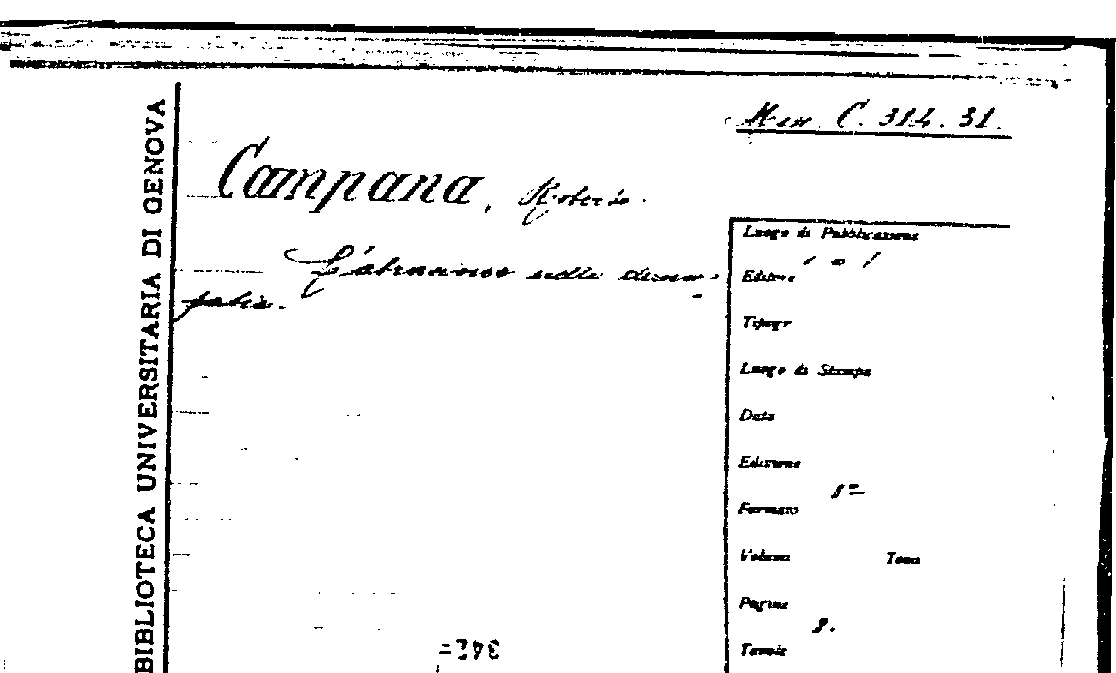 BIBLIOTECA UNIVERSITARIA DI GENOVA
Misc. C. 314. 31.
Campana, Roberto.
L'abruzzese nelle
Luogo di Pubblicazione
Editore
Tipogr
Luogo di Stampa
Data
Edizione
Formato 8º
Volume Tomo
Pagine 8.
Tavole